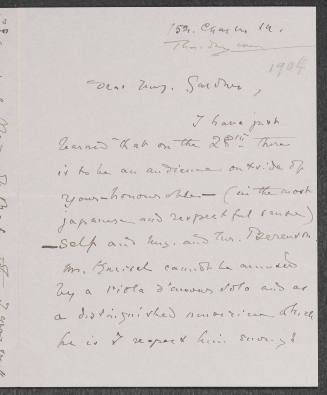 152. Charles St.
Thursday
1904
Dear Mrs. Gardner,
I have just
learned that on the 28th there
is to be an audience outside of
your-honourable- (in the most
japanese and respectful sense)
-self and Mrs. and Mr. Berenson
Mr. cannot be
by a Viola d'amour solo and as
a distinguished musician which
he is I respect him